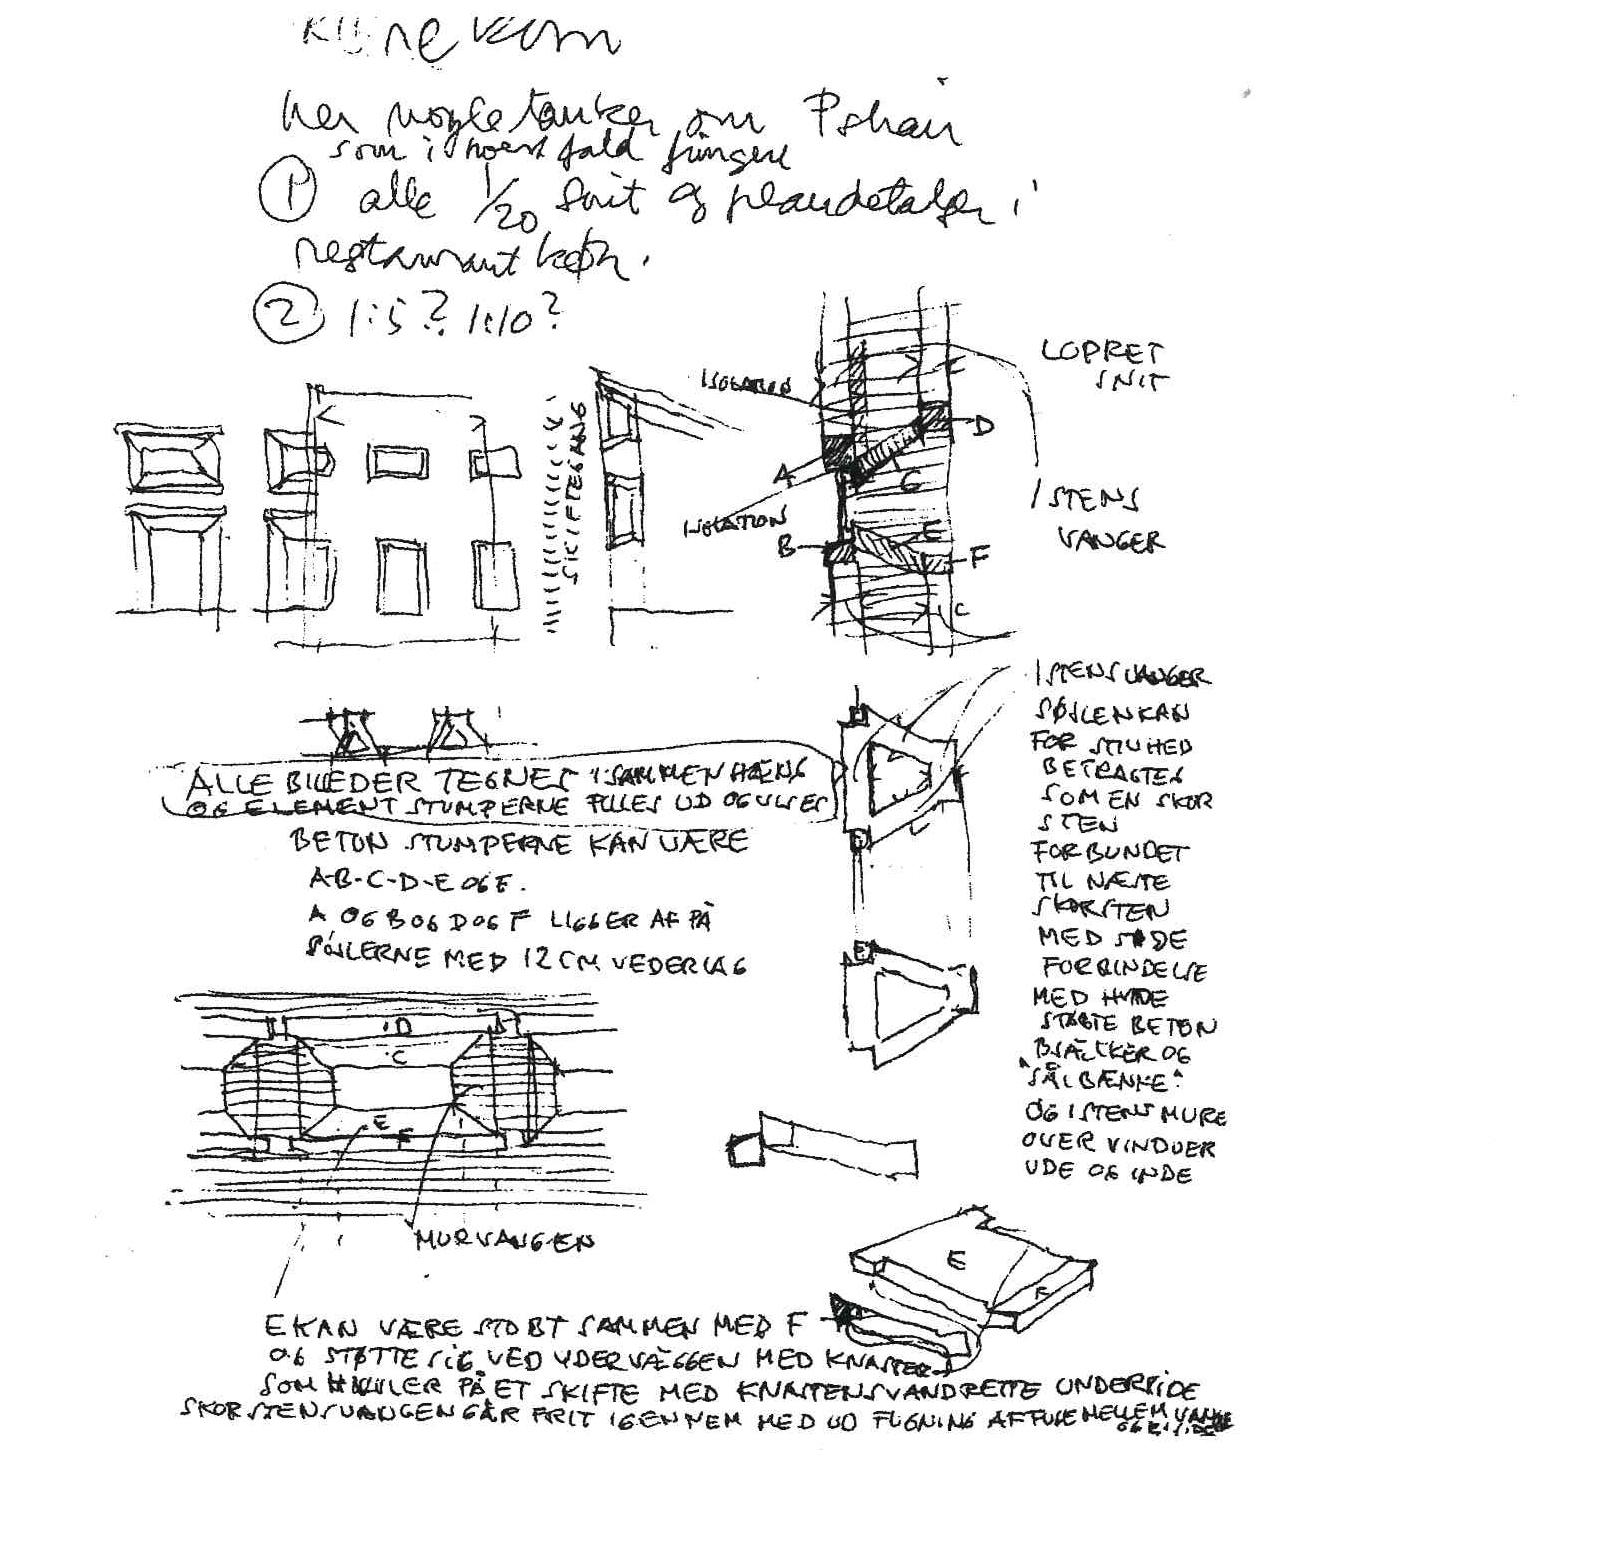 her nogle tanker om
som i hvert fald fungere
① alle 1/20 snit og plandetaljer i
restaurant køkn.
② 1:5? 1:10?
LOPRET
SNIT
ISOLATION
D
A
G
SKIFTEGANG
ISOLATION
1 STENS
VANGER
B
E
F
C
1 STENS VANGER
SØJLEN KAN
FOR STIVHED
BETRAGTES
SOM EN SKOR
STEN
FORBUNDET
TIL NÆSTE
SKORSTEN
MED
FORBINDELSE
MED HVIDE
STØBTE BETON
BJÆLKER OG
"SÅLBÆNKE"
OG 1 STENS MURE
OVER VINDUER
UDE OG INDE
ALLE BILLEDER TEGNES I SAMMENHÆNG
OG ELEMENT STUMPERNE PILLES UD OG VISES
BETON STUMPERNE KAN VÆRE
A-B-C-D-E OG F.
A OG B OG D OG F LIGGER AF PÅ
SØJLERNE MED 12 CM VEDERLAG
D
C
E
F
MURVANGEN
E
F
E KAN VÆRE STØBT SAMMEN MED F
OG STØTTE SIG VED YDERVÆGGEN MED KNASTER
SOM HVILER PÅ ET SKIFTE MED KNASTENS VANDRETTE UNDERSIDE
SKORSTENSVANGEN GÅR FRIT IGENNEM MED UD FUGNING AF FUGE MELLEM VANGE